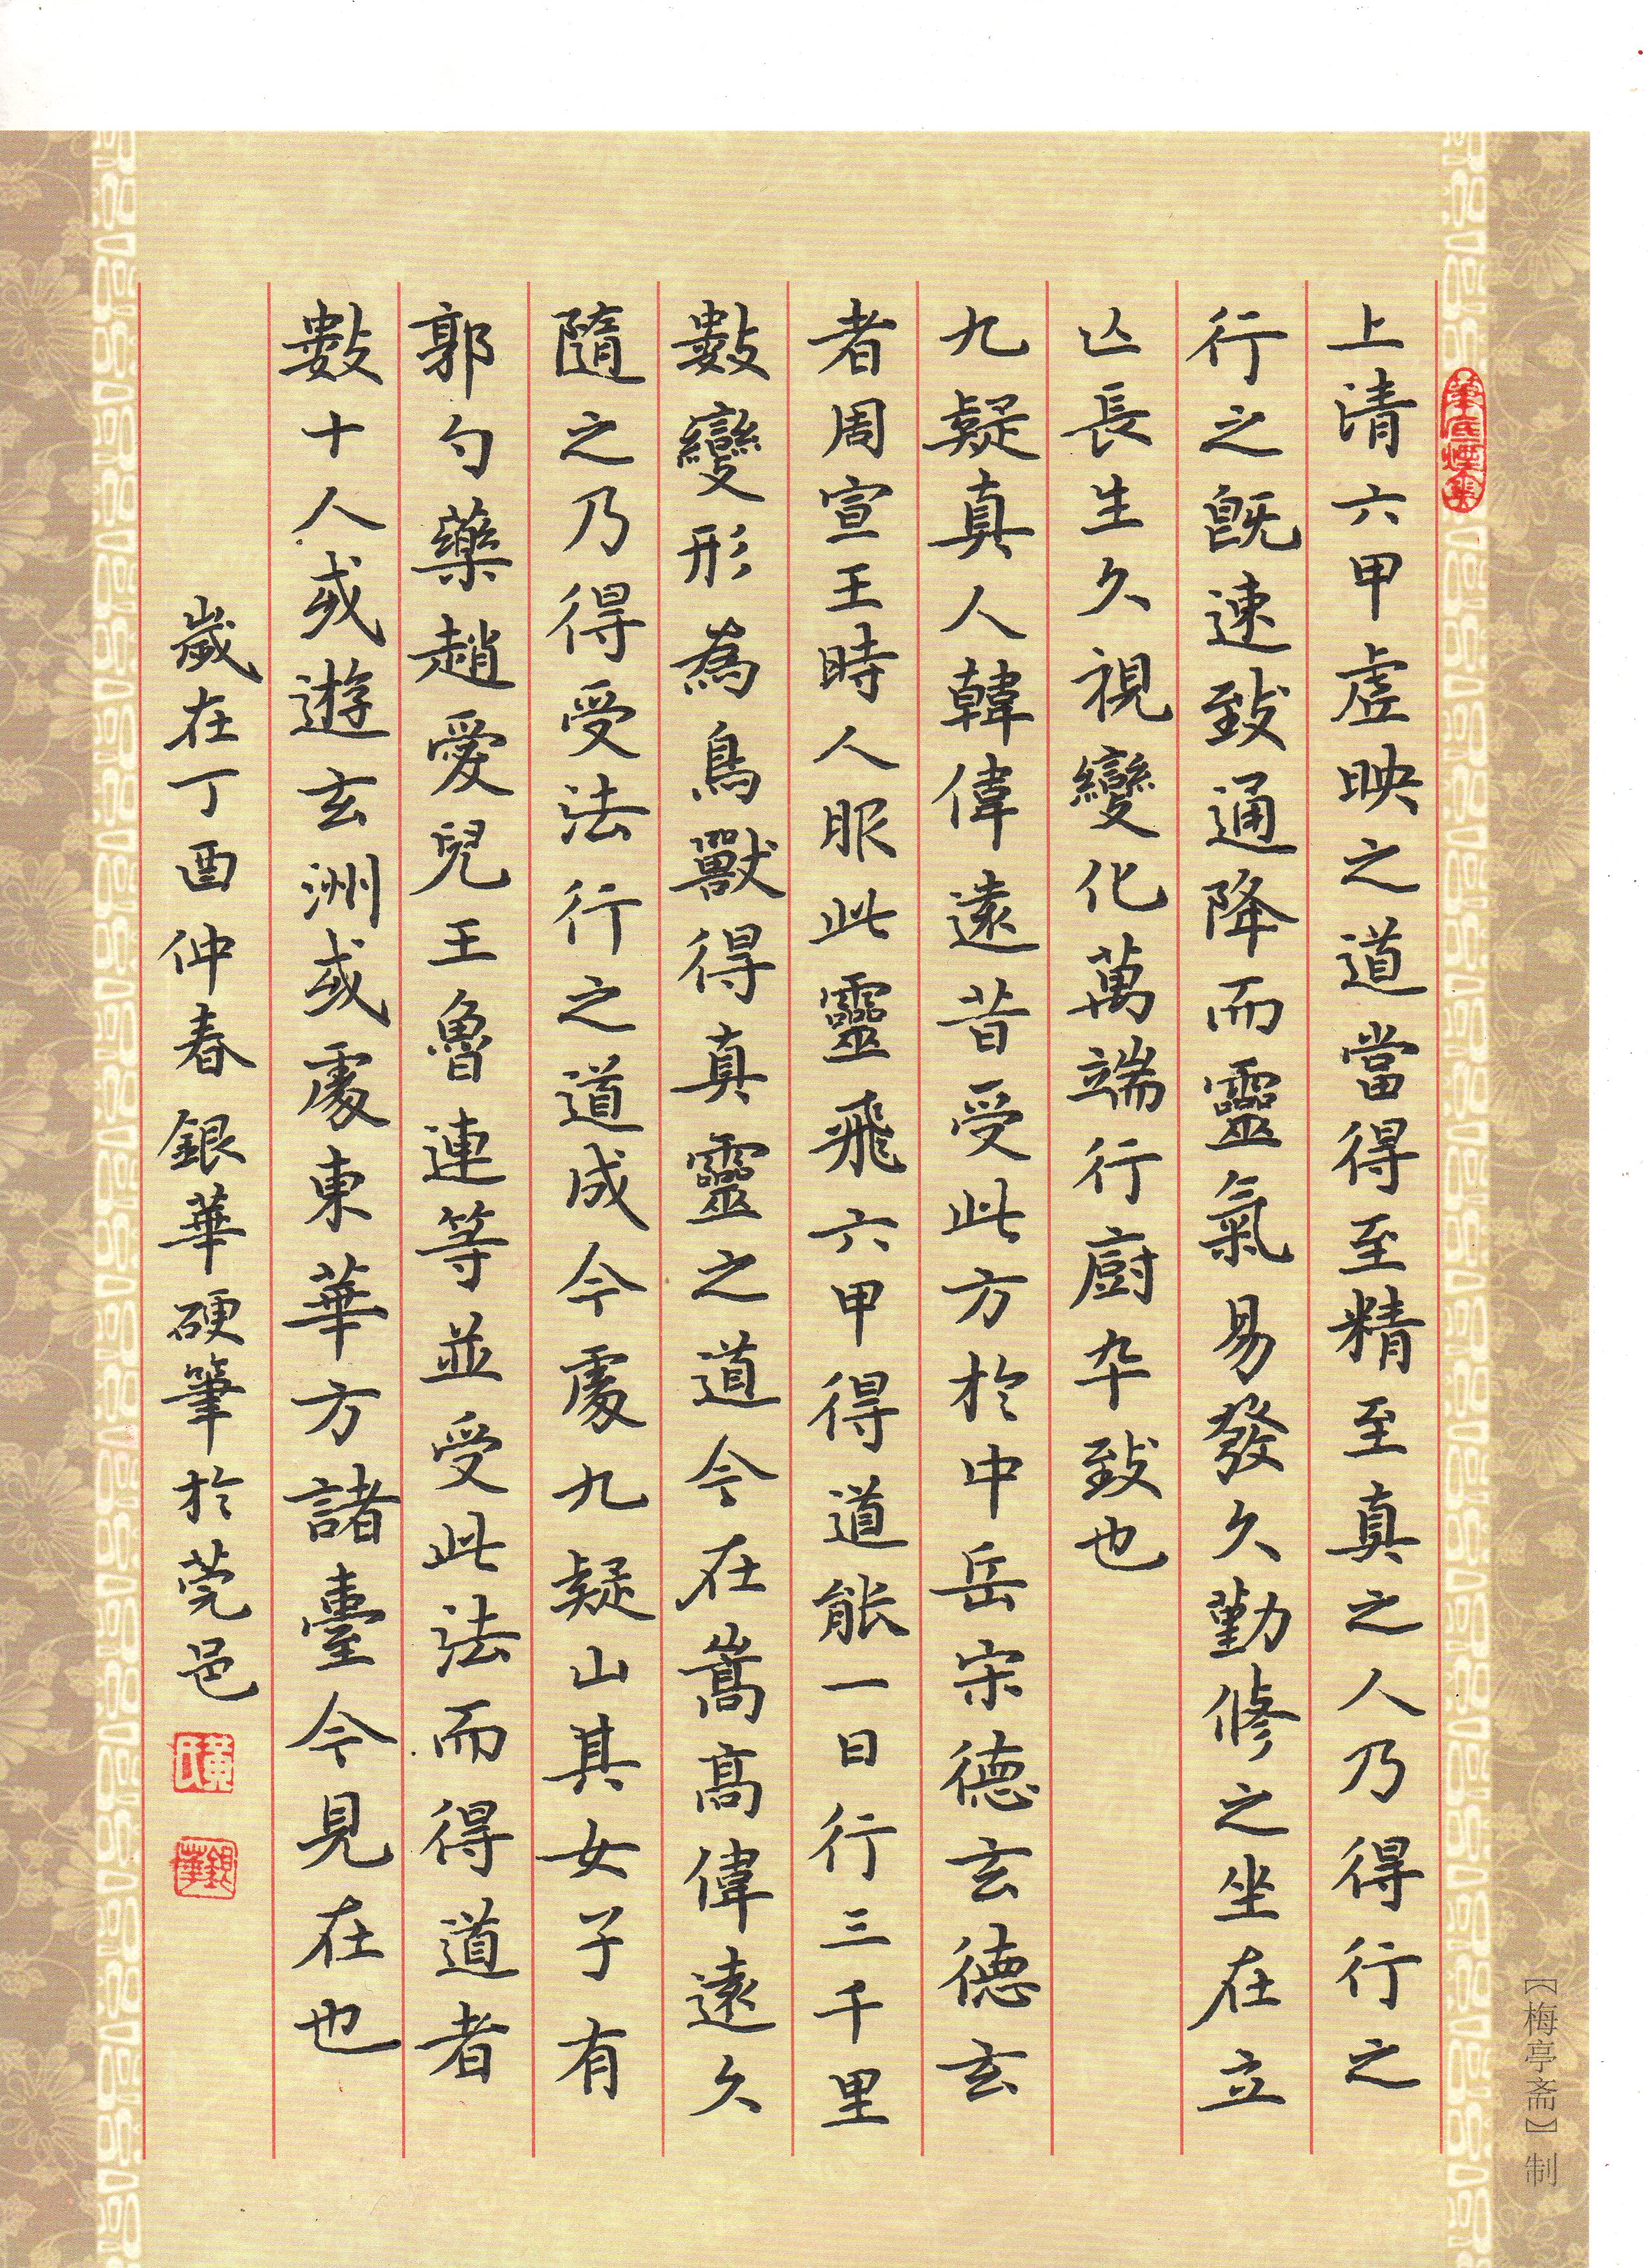 上清六甲虛映之道當得至精至真之人乃得行之
行之既速致通降而靈氣易發久勤修之坐在立
亾長生久視變化萬端行廚卒致也
九疑真人韓偉遠昔受此方於中岳宋德玄德玄
者周宣王時人服此靈飛六甲得道能一日行三千里
數變形為鳥獸得真靈之道今在嵩高偉遠久
隨之乃得受法行之道成今處九疑山其女子有
郭勺藥趙愛兒王魯連等並受此法而得道者
數十人或遊玄洲或處東華方諸臺今見在也
歲在丁酉仲春銀華硬筆於莞邑
黃氏
銀華
【梅亭斋】制